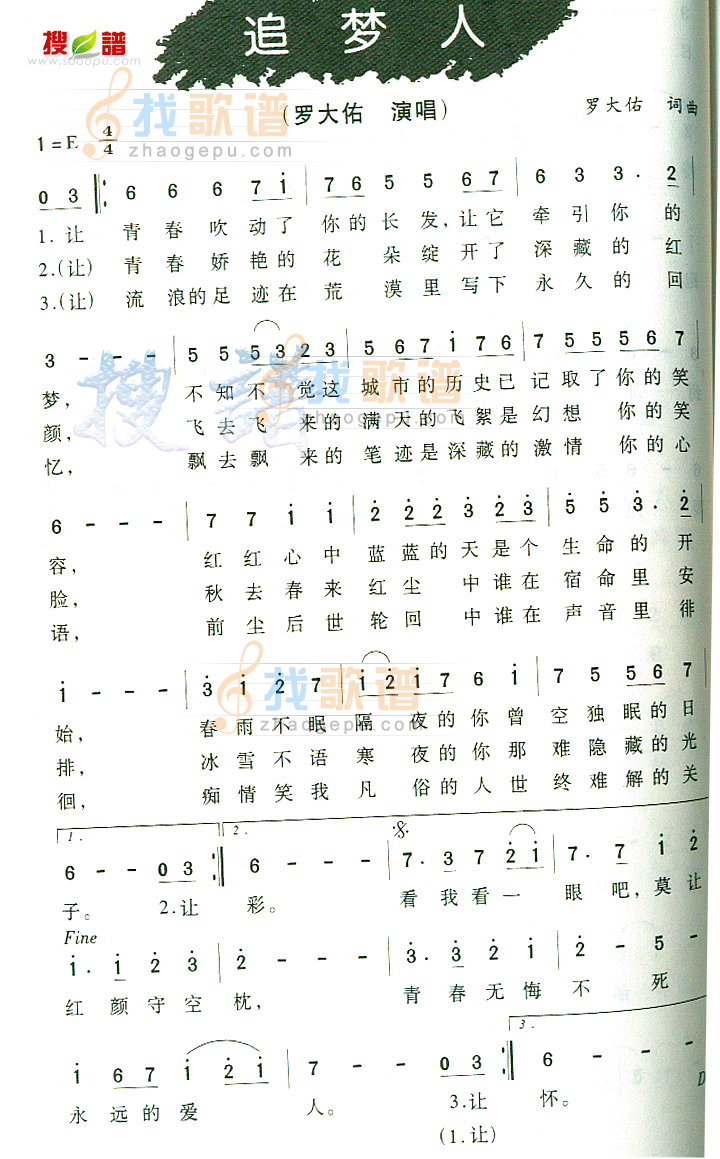 追梦人
搜谱
www.sooopu.com
找歌谱
zhaogepu.com
(罗大佑 演唱)
罗大佑 词曲
1=E 4/4
0 3 6 6 6 7 i 7 6 5 5 6 7 6 3 3 · 2
1.让 青春吹动了 你的长发,让它 牵引你的
2.(让) 青春娇艳的 花 朵绽开了 深藏的红
3.(让) 流浪的足迹在 荒 漠里写下 永久的回
3 - - - 5 5 5 3 2 3 5 6 7 i 7 6 7 5 5 5 6 7
梦, 不知不 觉这 城市的历史已 记取了你的笑
颜, 飞去飞 来的 满天的飞絮是 幻想 你的笑
忆, 飘去飘 来的 笔迹是深藏的 激情 你的心
搜谱
找歌谱
zhaogepu.com
6 - - - 7 7 i i 2 2 2 3 2 3 5 5 3 · 2
容, 红红心中 蓝蓝的天是个 生命的开
脸, 秋去春来 红尘 中谁在 宿命里安
语, 前尘后世 轮回 中谁在 声音里徘
i - - - 3 i 2 7 i 2 i 7 6 i 7 5 5 5 6 7
始, 春雨不眠 隔 夜的你曾 空独眠的日
排, 冰雪不语 寒 夜的你那 难隐藏的光
徊, 痴情笑我 凡 俗的人世 终难解的关
找歌谱
zhaogepu.com
1. 2.
6 - - 0 3 6 - - - 7 · 3 7 2 i 7 · 7 i 2
子。 2.让 彩。 看我看一 眼吧,莫让
Fine
i · i 2 3 2 - - - 3 · 3 2 i 2 - 5 -
红颜守空 枕, 青春无悔 不 死
3.
i 6 7 i 2 i 7 - - 0 3 6 - - -
D
永远的爱 人。 3.让 怀。
(1.让)